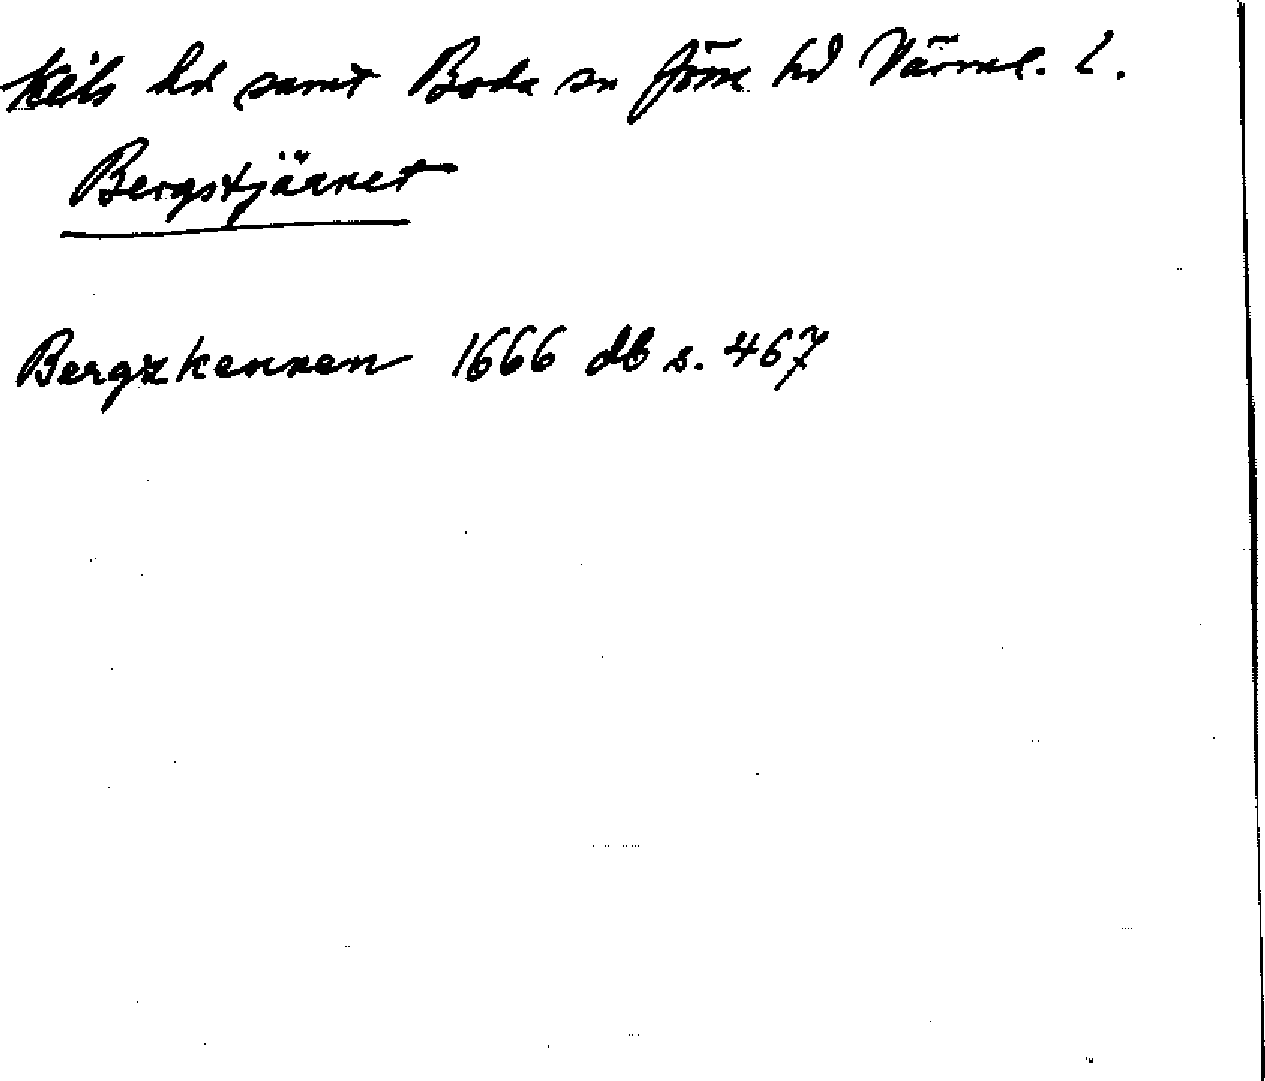 Kils hd samt Boda sn Jösse hd Värml. L.
Bergstjärnet
Bergzkennen 1666 db s. 467